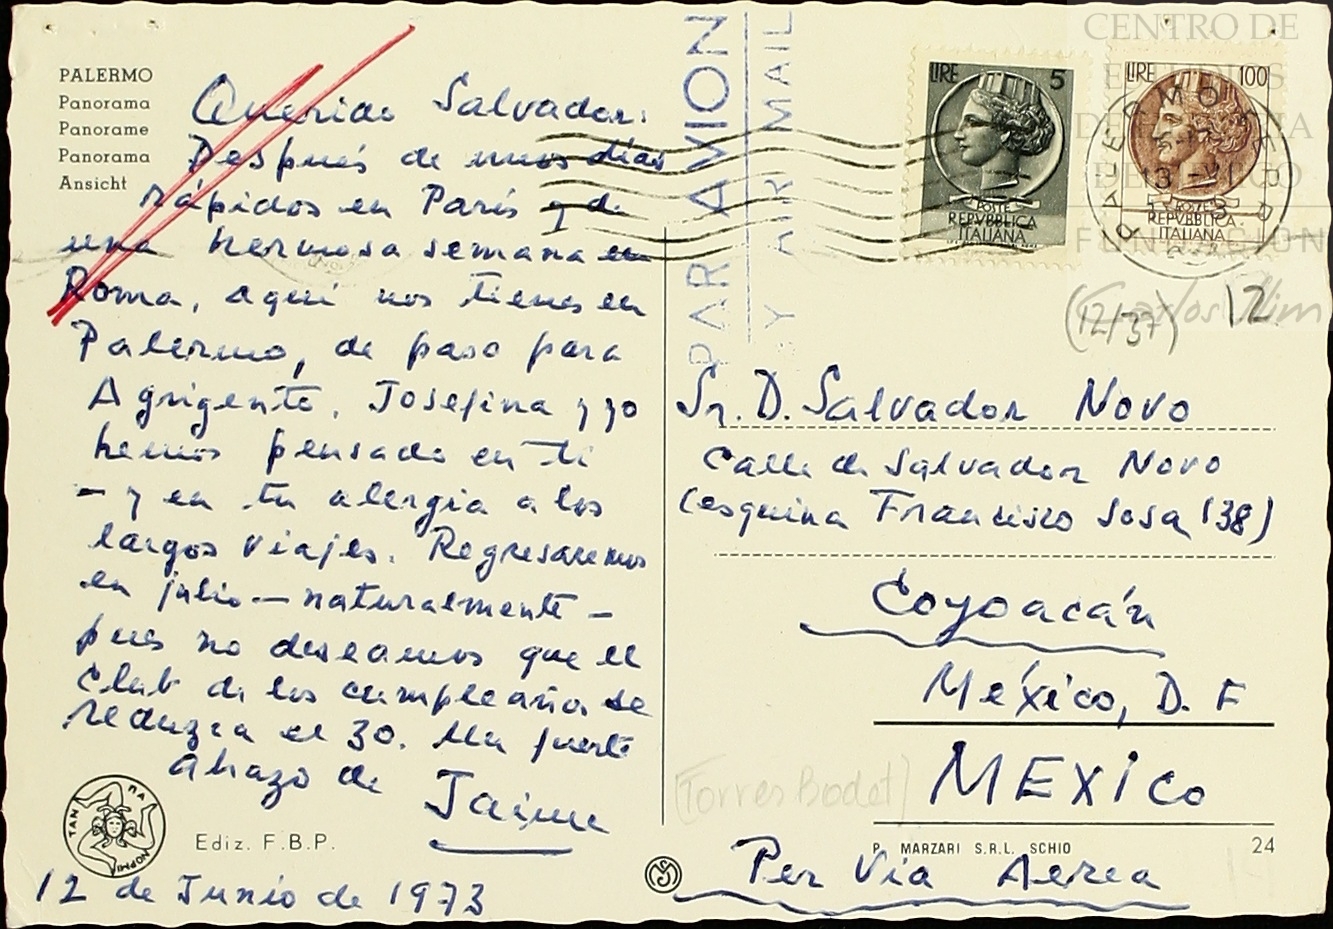 PALERMO
Panorama
Panorame
Panorama
Ansicht
Querido Salvador:
Después de unos días
rápidos en París y de
una hermosa semana en
Roma, aquí nos tienes en
Palermo, de paso para
Agrigento. Josefina y yo
hemos pensado en ti
— y en tu alergia a los
largos viajes. Regresaremos
en julio — naturalmente —
pues no deseamos que el
Club de los cumpleaños se
reduzca el 30. Un fuerte
abrazo de
Jaime
TAN ΠΑ ΝΟΡΜΙ
Ediz. F.B.P.
12 de Junio de 1973
PAR AVION
BY AIR MAIL
LIRE 5
POSTE
REPVBBLICA
ITALIANA
LIRE 100
POSTE
REPVBBLICA
ITALIANA
PALERMO
13 - VI
CENTRO DE
ESTUDIOS
DE HISTORIA
DE MÉXICO
FUNDACIÓN
Carlos Slim
(12/37)
12
Sr. D. Salvador Novo
Calle de Salvador Novo
(esquina Francisco Sosa 138)
Coyoacán
México, D. F
MEXICO
(Torres Bodet)
P. MARZARI S.R.L. SCHIO
24
Per Via Aerea